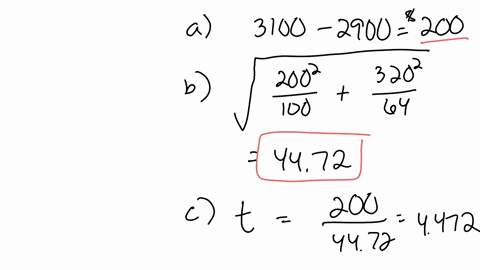 a) 3100 - 2900 = $200
b) √(200²/100 + 320²/64)
= 44.72
c) t = 200/44.72 = 4.472